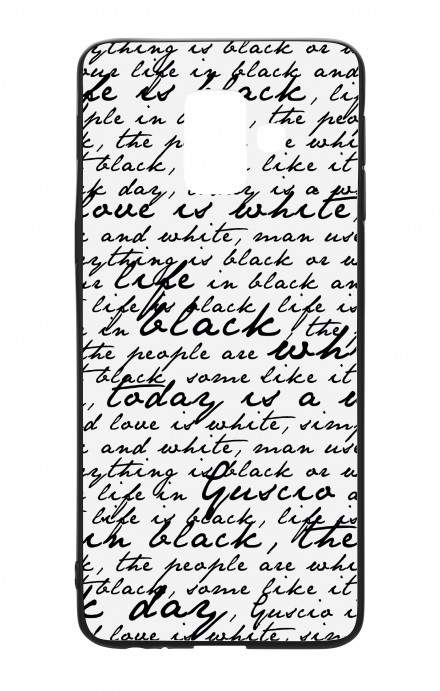 ything is black or w
our life in black and
fe is black, lif
ple in b , the peo
k, the p e whi
t black, like it
k day, today is a w
love is white,
k and white, man use
ything is black or w
ur life in black an
life is black, life is
in black, the
the people are wh
t black, some like it
, today is a w
d love is white, simp
k and white, man use
rything is black or w
life in Guscio a
life is black, life is
in black, the
k, the people are whi
t black, some like it
k day, Guscio i
love is white, sim